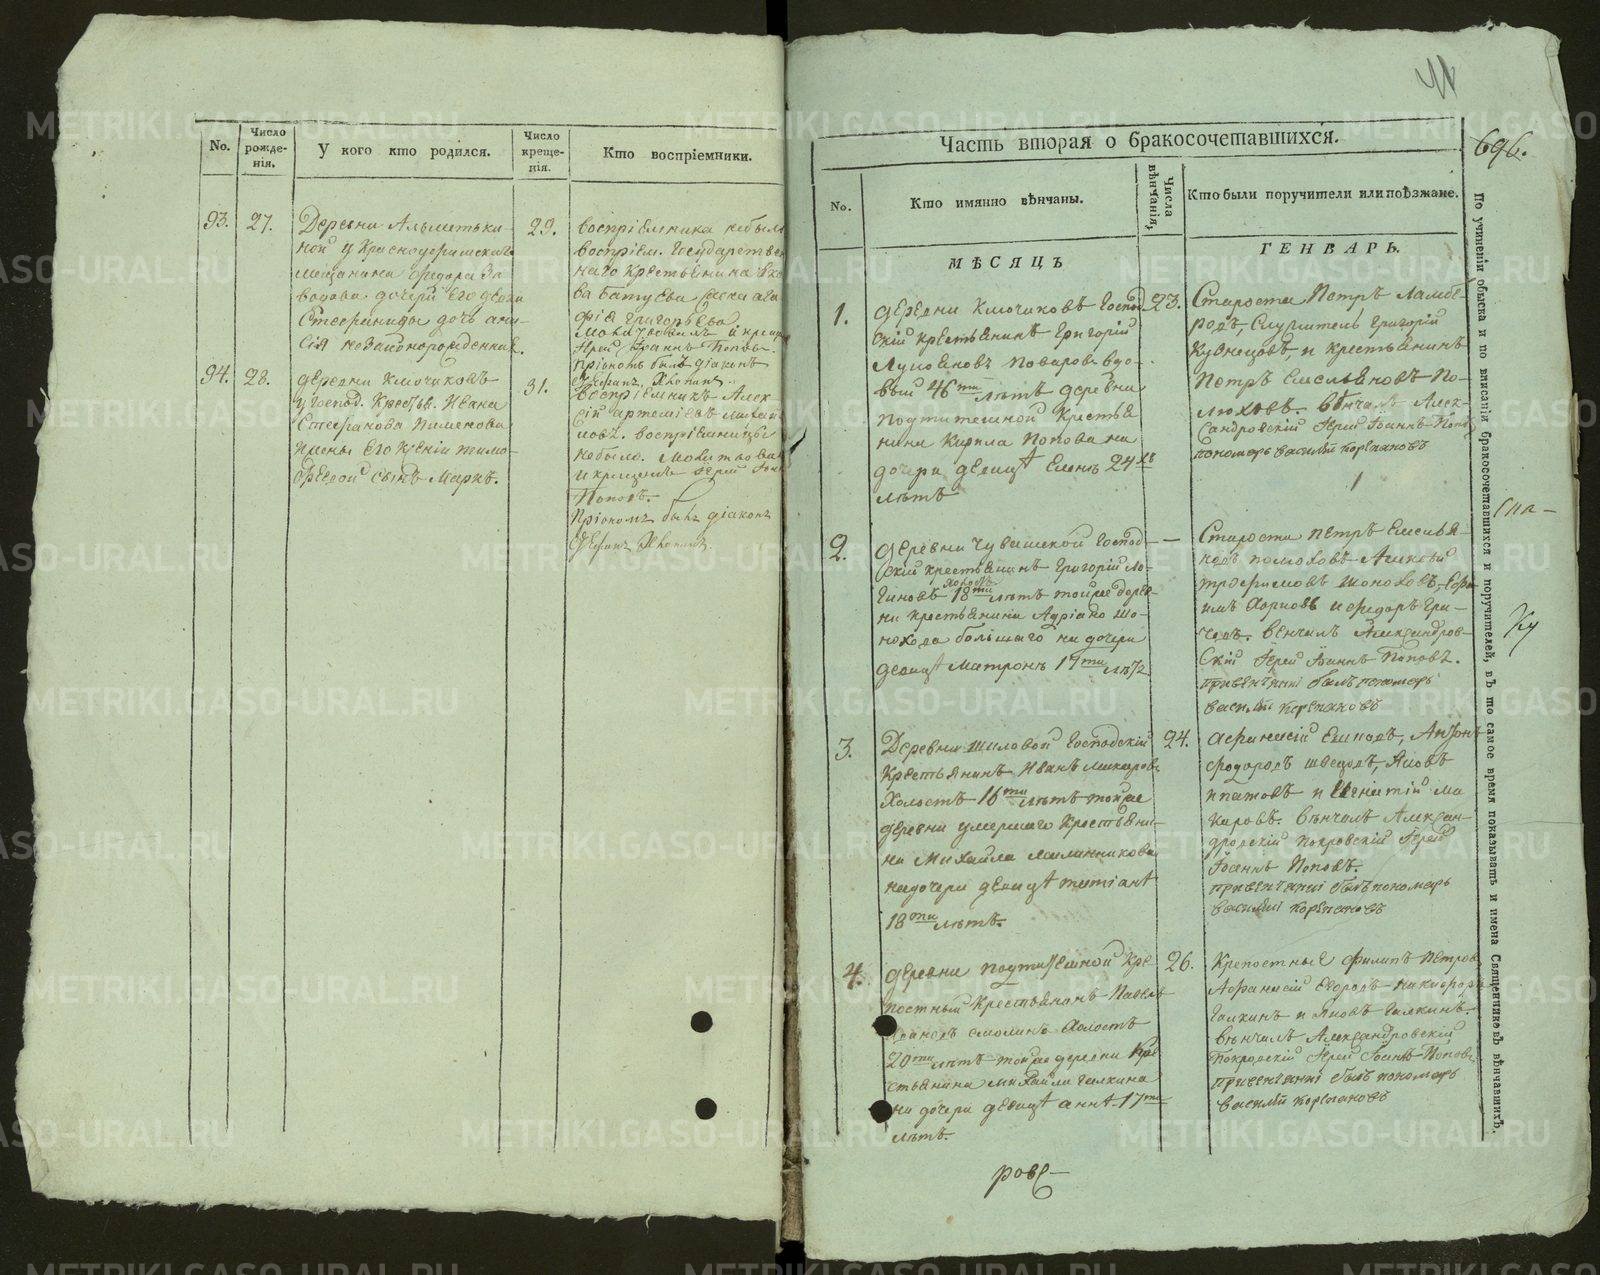 No.
Число рожде- нія.
У кого кто родился.
Число креще- нія.
Кто воспріемники.
93.
27.
Деревни Альметьки-
ной у Красноуфимскаго
мещанина Федора За
водова дочери его девки
Стефаниды дочь ани-
сія незаконорожденная.
29.
воспріемника небыло
воспріем. Государствен
наго крестьянина
ва Батуева
фія Григорьева
Молитвовалъ и крести
Іерей Іоаннъ Поповъ.
Пріономъ былъ діаконъ
Стефанъ Хлопинъ.
94.
28.
деревни Ключиковъ
у Господ. Крестьян. Ивана
Стефанова Пименова
и жены его Ксеніи Тимо-
феевой сынъ Маркъ.
31.
Воспріемникъ Алек
сій Артеміевъ Михай
ловъ. воспріемницы
небыло. Молитвова
и крещенъ Іерей Іоан
Поповъ.
Пріономъ былъ діаконъ
Стефанъ Хлопинъ.
696.
Часть вторая о бракосочетавшихся.
No.
Кто имянно вѣнчаны.
Числа вѣнчанія.
Кто были поручители или поѣзжане.
МѢСЯЦЪ
ГЕНВАРЬ.
1.
деревни Ключиковъ Господ
скій крестьянинъ Григорій
Лукояновъ Поваровъ вдо-
вый 46ти лѣтъ деревни
Подгитешной Крестья
нина Кирила Попова на
дочери девицѣ Еленѣ 24хъ
лѣтъ
23.
Староста Петръ
Служитель Григорій
Кузнецовъ, и крестьянинъ
Петръ Емельяновъ По-
люховъ. Вѣнчалъ Алек-
сандровскій Іерей Іоаннъ Попо
пономарь василій Корепановъ
2.
деревни Чувашской Господ-
скій крестьянинъ Григорій Ло-
гиновъ холостъ 18ти лѣтъ тойже дерев-
ни крестьянина Адріана Шо-
нохова большаго на дочери
девицѣ Матронѣ 17ти лѣтъ
—
Староста Петръ Емелья-
новъ полюховъ Алексѣй
трофимовъ Шонохов,
имъ и Федоръ Гри-
. Венчалъ Александров-
скій Іерей Іоаннъ Поповъ.
привенчаніи былъ пономарь
василій Корепановъ
3.
Деревни Шиловой Господскій
Крестьянинъ Иванъ Макаровъ
Холостъ 16ти лѣтъ тойже
деревни умершаго Крестьяни-
на Михайла Малинникова
надочери девицѣ татіанѣ
18ти лѣтъ.
24.
Афанасій , Антонъ
швецовъ, Яковъ
ипатовъ и Игнатій Ма
каровъ. Вѣнчалъ Алексан-
дровскій Покровскій Іерей
Іоаннъ Поповъ.
привенчаніи былъ пономарь
василій Корепановъ
4.
деревни Подгитешной Кре
постный Крестьянинъ Павелъ
Смолинъ Холостъ
20ти лѣтъ тойже деревни Кре
стьянина Михайла Галкина
на дочери девицѣ аннѣ 17ти
лѣтъ.
26.
Крепостные Филипъ Петров
Афанасій Никифоръ
Галкинъ и Яковъ Галкинъ.
Вѣнчалъ Александровскій
Покровскій Іерей Іоаннъ Поповъ
привенчаніи былъ пономарь
василій Корепановъ
По учиненіи обыска и по вписаніи бракосочетавшихся и поручителей, въ то самое время показывать и имена Священниковъ вѣнчавшихъ.
METRIKI.GASO-URAL.RU